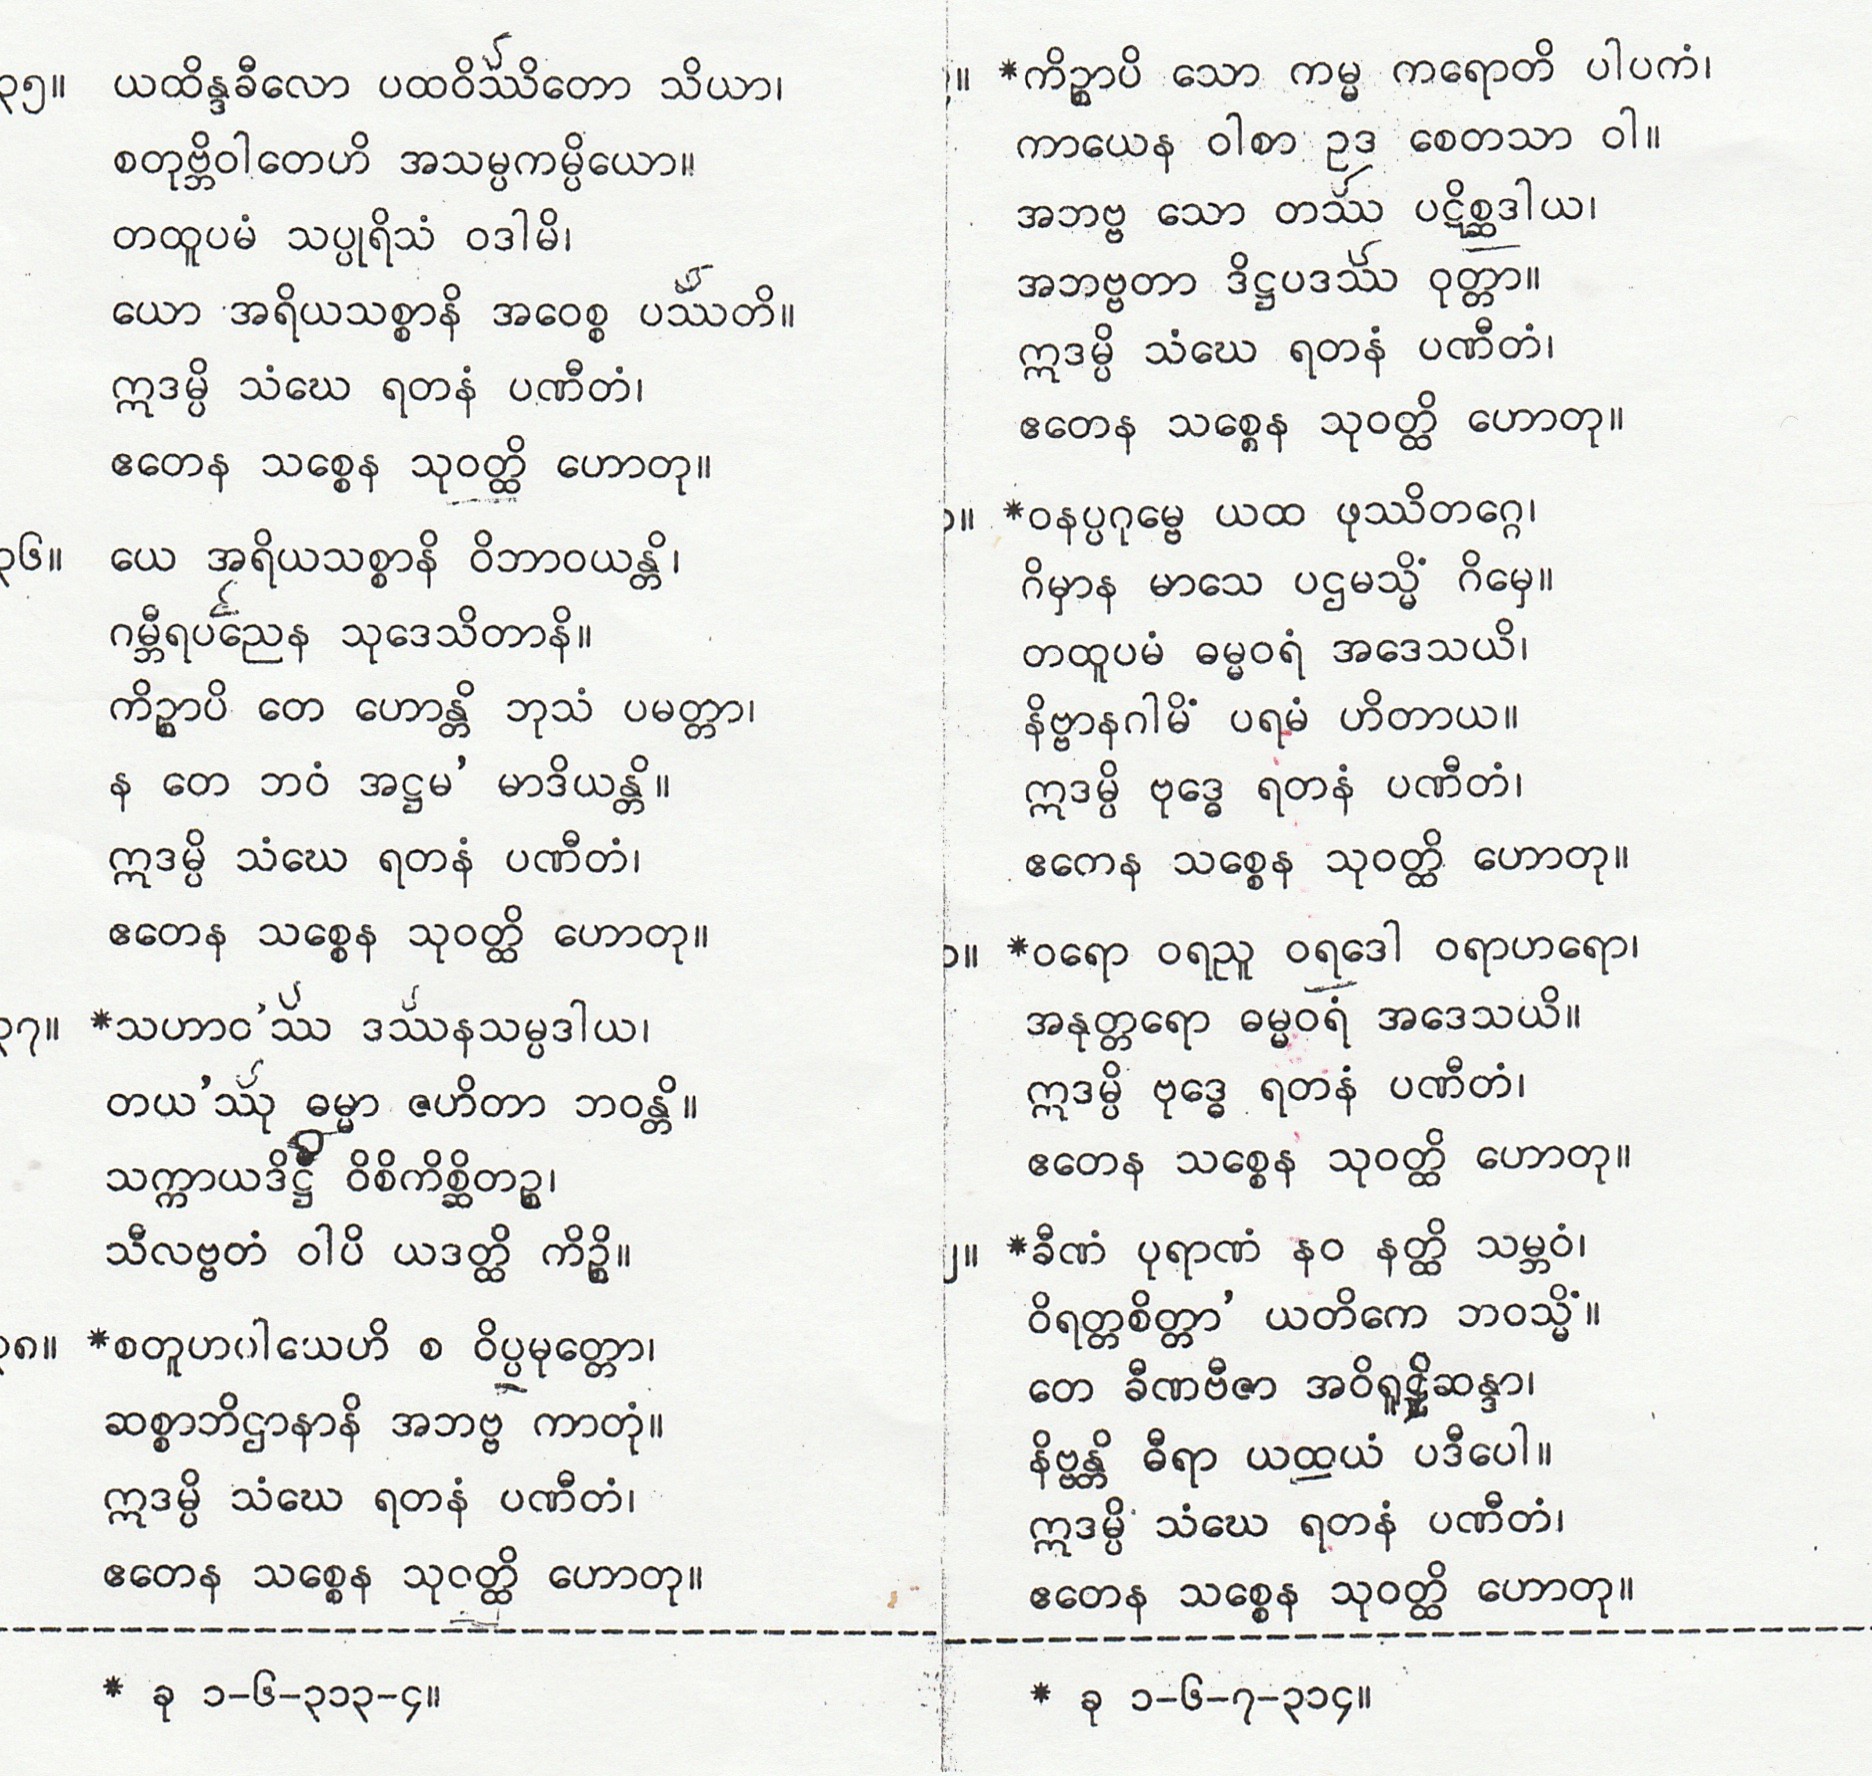 ၃၅။ ယထိန္ဒခီလော ပထဝိဿိတော သိယာ၊
စတုဗ္ဘိဝါတေဟိ အသမ္ပကမ္ပိယော။
တထူပမံ သပ္ပုရိသံ ဝဒါမိ၊
ယော အရိယသစ္စာနိ အဝေစ္စ ပဿတိ။
ဣဒမ္ပိ သံဃေ ရတနံ ပဏီတံ၊
ဧတေန သစ္စေန သုဝတ္ထိ ဟောတု။
၃၆။ ယေ အရိယသစ္စာနိ ဝိဘာဝယန္တိ၊
ဂမ္ဘီရပညေန သုဒေသိတာနိ။
ကိဉ္စာပိ တေ ဟောန္တိ ဘုသံ ပမတ္တာ၊
န တေ ဘဝံ အဋ္ဌမ’ မာဒိယန္တိ။
ဣဒမ္ပိ သံဃေ ရတနံ ပဏီတံ၊
ဧတေန သစ္စေန သုဝတ္ထိ ဟောတု။
၃၇။ *သဟာဝ’ဿ ဒဿနသမ္ပဒါယ၊
တယ’ဿု ဓမ္မာ ဇဟိတာ ဘဝန္တိ။
သက္ကာယဒိဋ္ဌိ ဝိစိကိစ္ဆိတဉ္စ၊
သီလဗ္ဗတံ ဝါပိ ယဒတ္ထိ ကိဉ္စိ။
၃၈။ *စတူဟပါယေဟိ စ ဝိပ္ပမုတ္တော၊
ဆစ္စာဘိဌာနာနိ အဘဗ္ဗ ကာတုံ။
ဣဒမ္ပိ သံဃေ ရတနံ ပဏီတံ၊
ဧတေန သစ္စေန သုဝတ္ထိ ဟောတု။
* ခု ၁–၆–၃၁၃–၄။
။ *ကိဉ္စာပိ သော ကမ္မ ကရောတိ ပါပကံ၊
ကာယေန ဝါစာ ဥဒ စေတသာ ဝါ။
အဘဗ္ဗ သော တဿ ပဋိစ္ဆဒါယ၊
အဘဗ္ဗတာ ဒိဋ္ဌပဒဿ ဝုတ္တာ။
ဣဒမ္ပိ သံဃေ ရတနံ ပဏီတံ၊
ဧတေန သစ္စေန သုဝတ္ထိ ဟောတု။
။ *ဝနပ္ပဂုမ္ဗေ ယထ ဖုဿိတဂ္ဂေ၊
ဂိမှာန မာသေ ပဌမသ္မိံ ဂိမှေ။
တထူပမံ ဓမ္မဝရံ အဒေသယိ၊
နိဗ္ဗာနဂါမိံ ပရမံ ဟိတာယ။
ဣဒမ္ပိ ဗုဒ္ဓေ ရတနံ ပဏီတံ၊
ဧတေန သစ္စေန သုဝတ္ထိ ဟောတု။
။ *ဝရော ဝရညူ ဝရဒေါ ဝရာဟရော၊
အနုတ္တရော ဓမ္မဝရံ အဒေသယိ။
ဣဒမ္ပိ ဗုဒ္ဓေ ရတနံ ပဏီတံ၊
ဧတေန သစ္စေန သုဝတ္ထိ ဟောတု။
။ *ခီဏံ ပုရာဏံ နဝ နတ္ထိ သမ္ဘဝံ၊
ဝိရတ္တစိတ္တာ’ ယတိကေ ဘဝသ္မိံ။
တေ ခီဏဗီဇာ အဝိရူဠှိဆန္ဒာ၊
နိဗ္ဗန္တိ ဓီရာ ယထယံ ပဒီပေါ။
ဣဒမ္ပိ သံဃေ ရတနံ ပဏီတံ၊
ဧတေန သစ္စေန သုဝတ္ထိ ဟောတု။
* ခု ၁–၆–၇–၃၁၄။